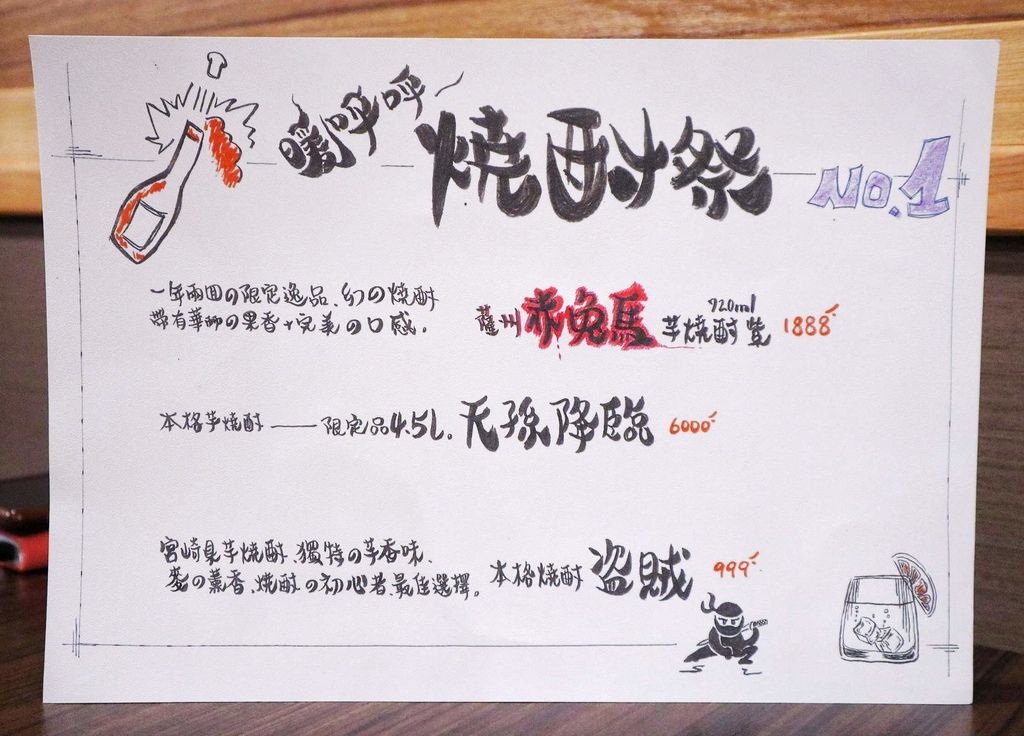 暖呼呼~
燒酎祭
NO.1
一年兩回の限定逸品、幻の燒酎
帶有華麗の果香+完美の口感。
薩州 赤兔馬 芋燒酎 紫 720ml 1888
本格芋燒酎——限定品4.5L。天孫降臨 6000
宮崎県芋燒酎、獨特の芋香味、
麥の薰香、燒酎の初心者最佳選擇。
本格燒酎 盜賊 999